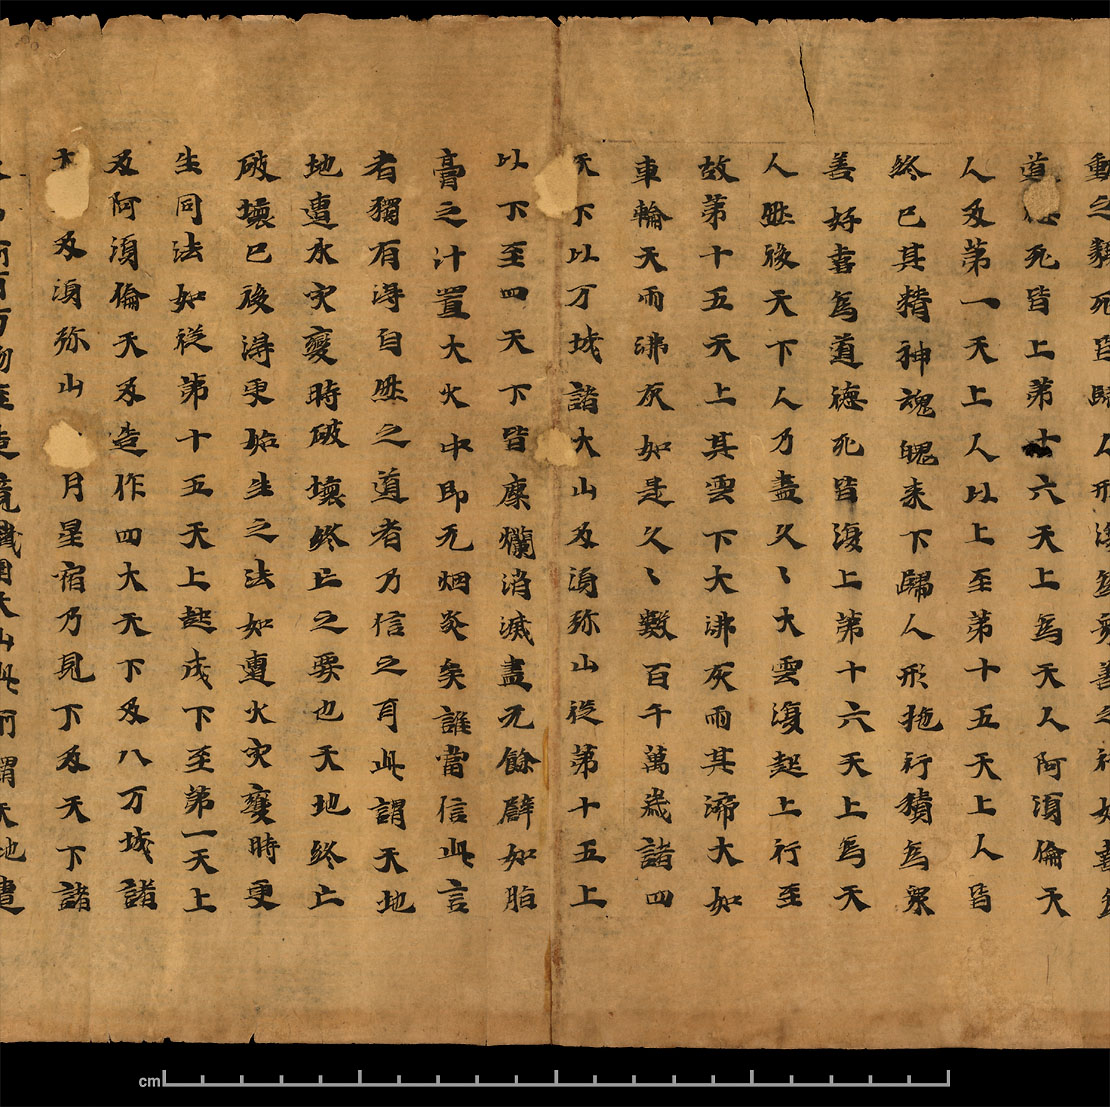 動之類死皆歸人形復爲衆善之行好喜爲
道德死皆上第十六天上爲天人阿湏倫天
人及第一天上人以上至第十五天上人皆
終已其精神魂魄来下歸人形施行積爲衆
善好喜爲道德死皆復上第十六天上爲天
人然後天下人乃盡久〻大雲復起上行至
故第十五天上其雲下大沸灰雨其渧大如
車輪天雨沸灰如是久〻數百千萬歲諸四
天下以万城諸大山及湏弥山從第十五上
以下至四天下皆糜爛消滅盡无餘辟如脂
膏之汁置大火中即无烟炎矣誰當信此言
者獨有得自然之道者乃信之耳此謂天地
地遭水灾變時破壞終亡之要也天地終亡
破壞已後得更始生之法如遭火灾變時更
生同法如從第十五天上起成下至第一天上
及阿湏倫天及造作四大天下及八万城諸
大及湏弥山月星宿乃見下及天下諸